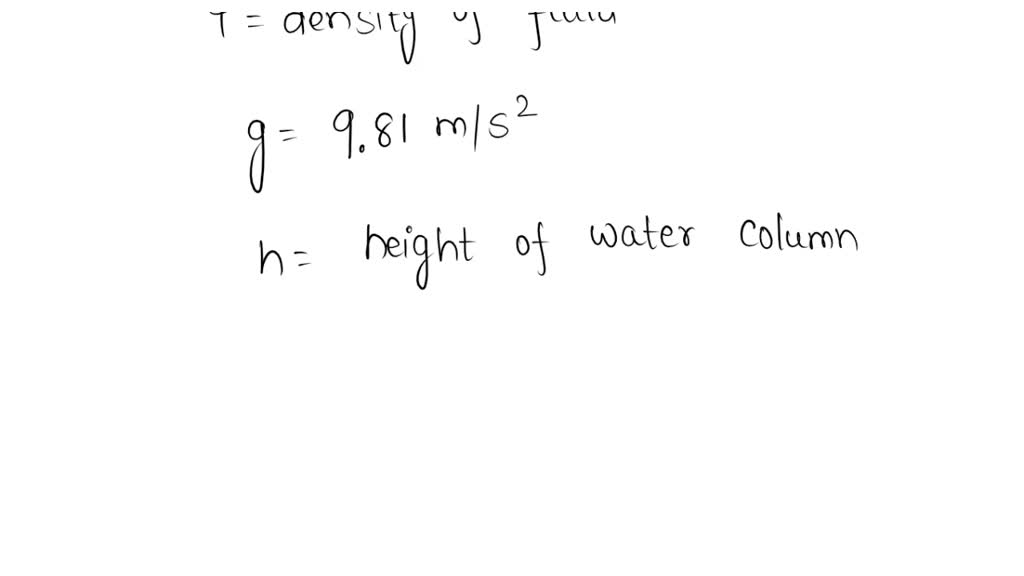 = density of fluid
g = 9.81 m/s²
h = height of water column